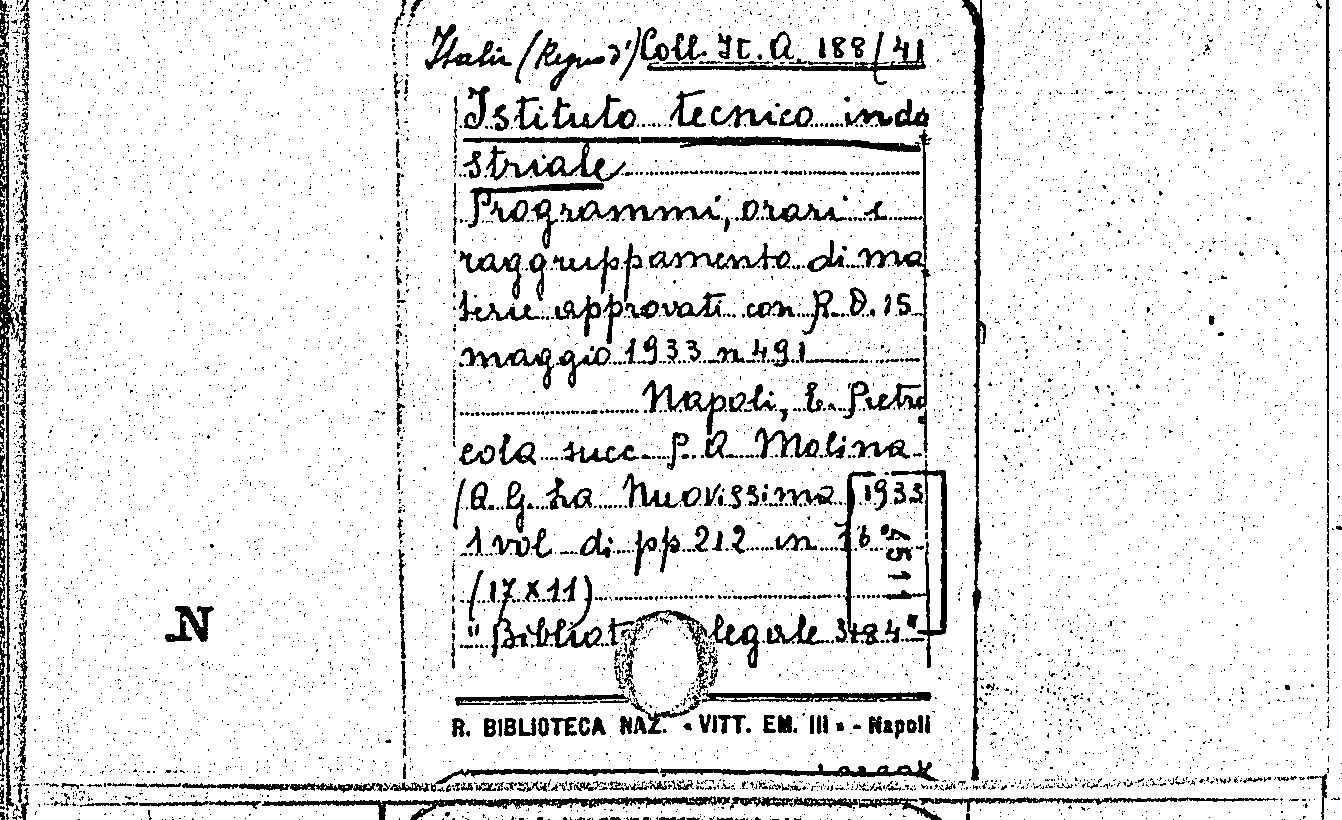 Italia (Regno d') Coll. It. A. 188/41
Istituto tecnico indu
striale
Programmi, orari e
raggruppamento di ma
terie approvati con R. D. 15
maggio 1933 n 491
Napoli, E. Pietro
cola succ. P. A. Molina
(A. G. La Nuovissima) 1933
1 vol di pp 212 in 16°
(17 x 11)
4511
" legale 3184"
R. BIBLIOTECA NAZ. « VITT. EM. III » - Napoli
N.